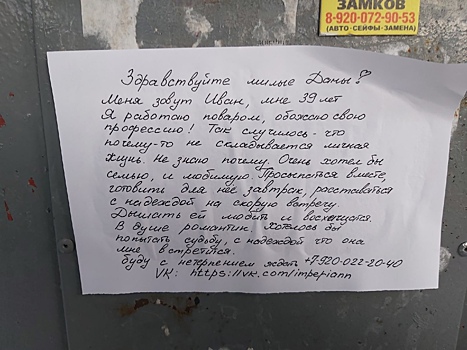 ЗАМКОВ
8-920-072-90-53
(АВТО-СЕЙФЫ-ЗАМЕНА)
Здравствуйте милые Дамы!
Меня зовут Иван, мне 39 лет
Я работаю поваром, обожаю свою
профессию! Так случилось - что
почему-то не складывается личная
жизнь. Не знаю почему. Очень хотел бы
семью, и любимую. Просыпаться вместе,
готовить для неё завтрак, расставаться
с надеждой на скорую встречу.
Дышать ей любить и восхищатся.
В душе романтик. Хотелось бы
попытать судьбу, с надеждой что она
мне встретится.
буду с нетерпением ждать +7-920-022-20-40
VK: https://vk.com/imperiann